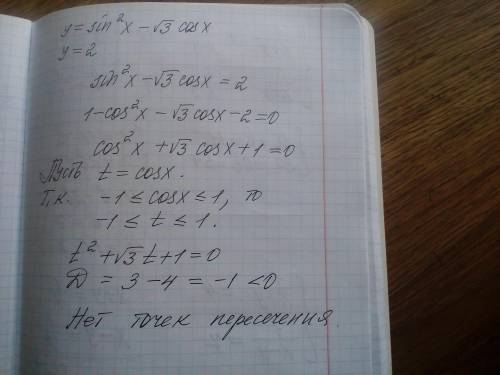 y = sin²x − √3 cosx
y = 2
sin²x − √3 cosx = 2
1 − cos²x − √3 cosx − 2 = 0
cos²x + √3 cosx + 1 = 0
Пусть t = cosx.
Т.к. −1 ≤ cosx ≤ 1, то
−1 ≤ t ≤ 1.
t² + √3 t + 1 = 0
D = 3 − 4 = −1 < 0
Нет точек пересечения.